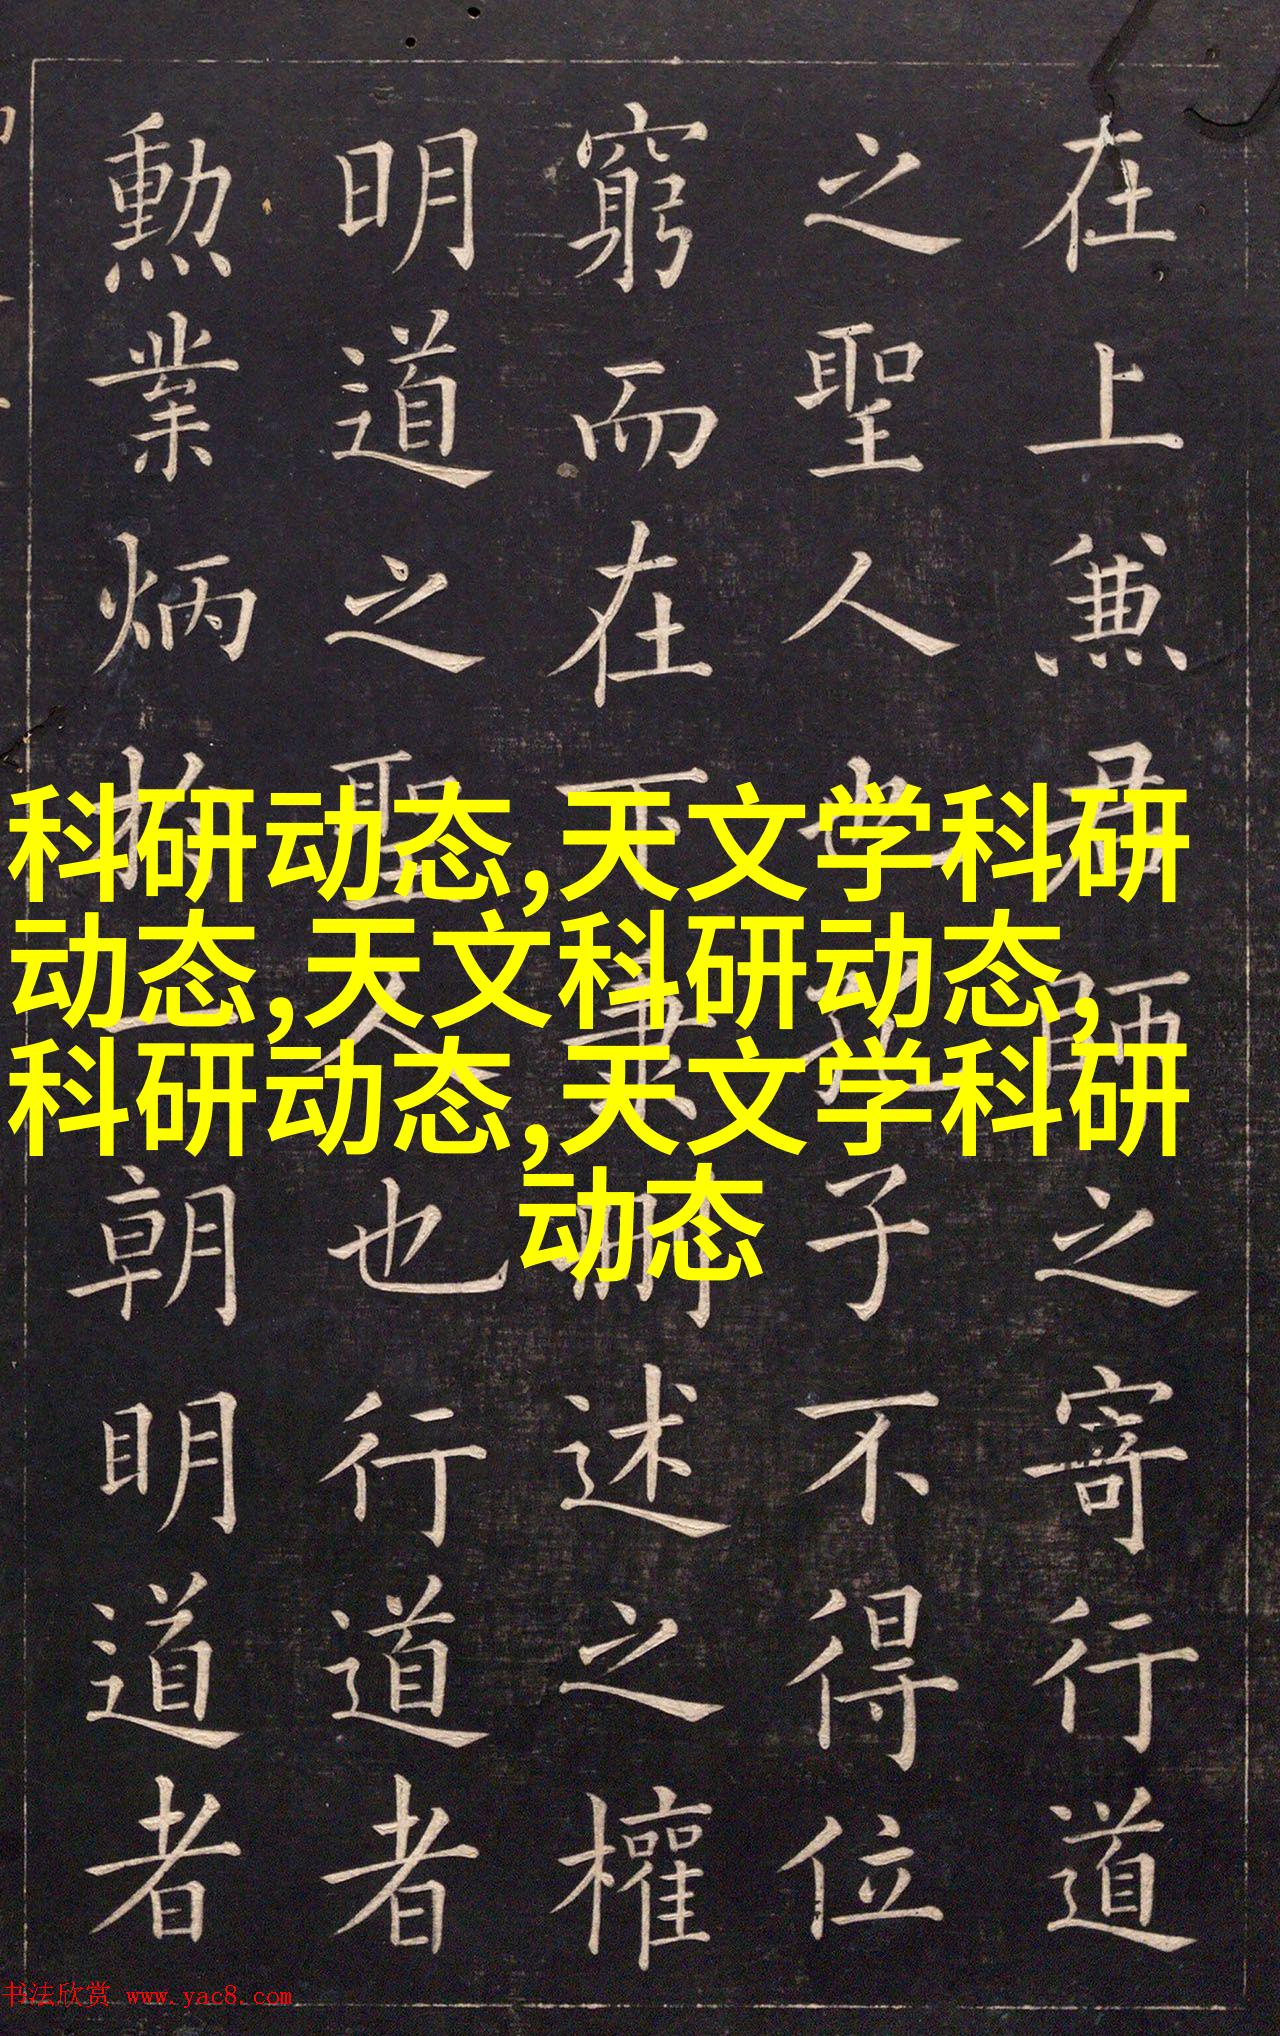 在上兼君師之寄行道
之聖人也孔子不得位
窮而在下秉刪述之權
明道之聖人也行道者
勳業炳於一朝明道者
科研动态,天文学科研
动态,天文科研动态,
科研动态,天文学科研
动态
书法欣赏 www.yac8.com